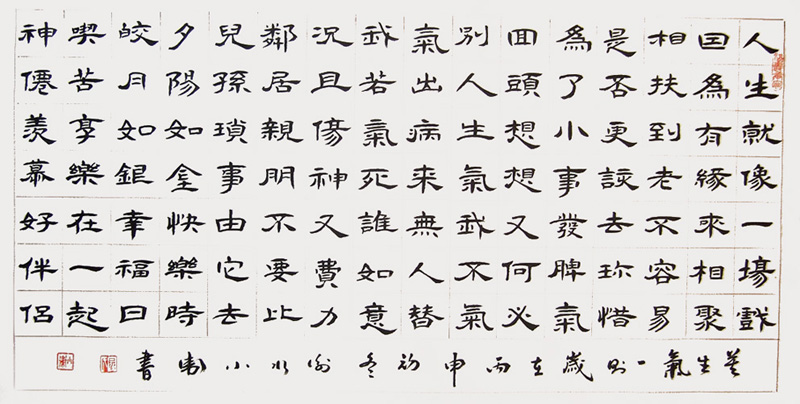 人生就像一場戲
囙為有緣來相聚
相扶到老不容易
是否更該去珍惜
為了小事發脾氣
回頭想想又何必
別人生氣我不氣
氣出病來無人替
我若氣死誰如意
況且傷神又費力
鄰居親朋不要比
兒孫瑣事由它去
夕陽如金快樂時
皎月如銀幸福日
喫苦享樂在一起
神僊羨慕好伴侶
莫生氣一則歲在丙申初冬小書